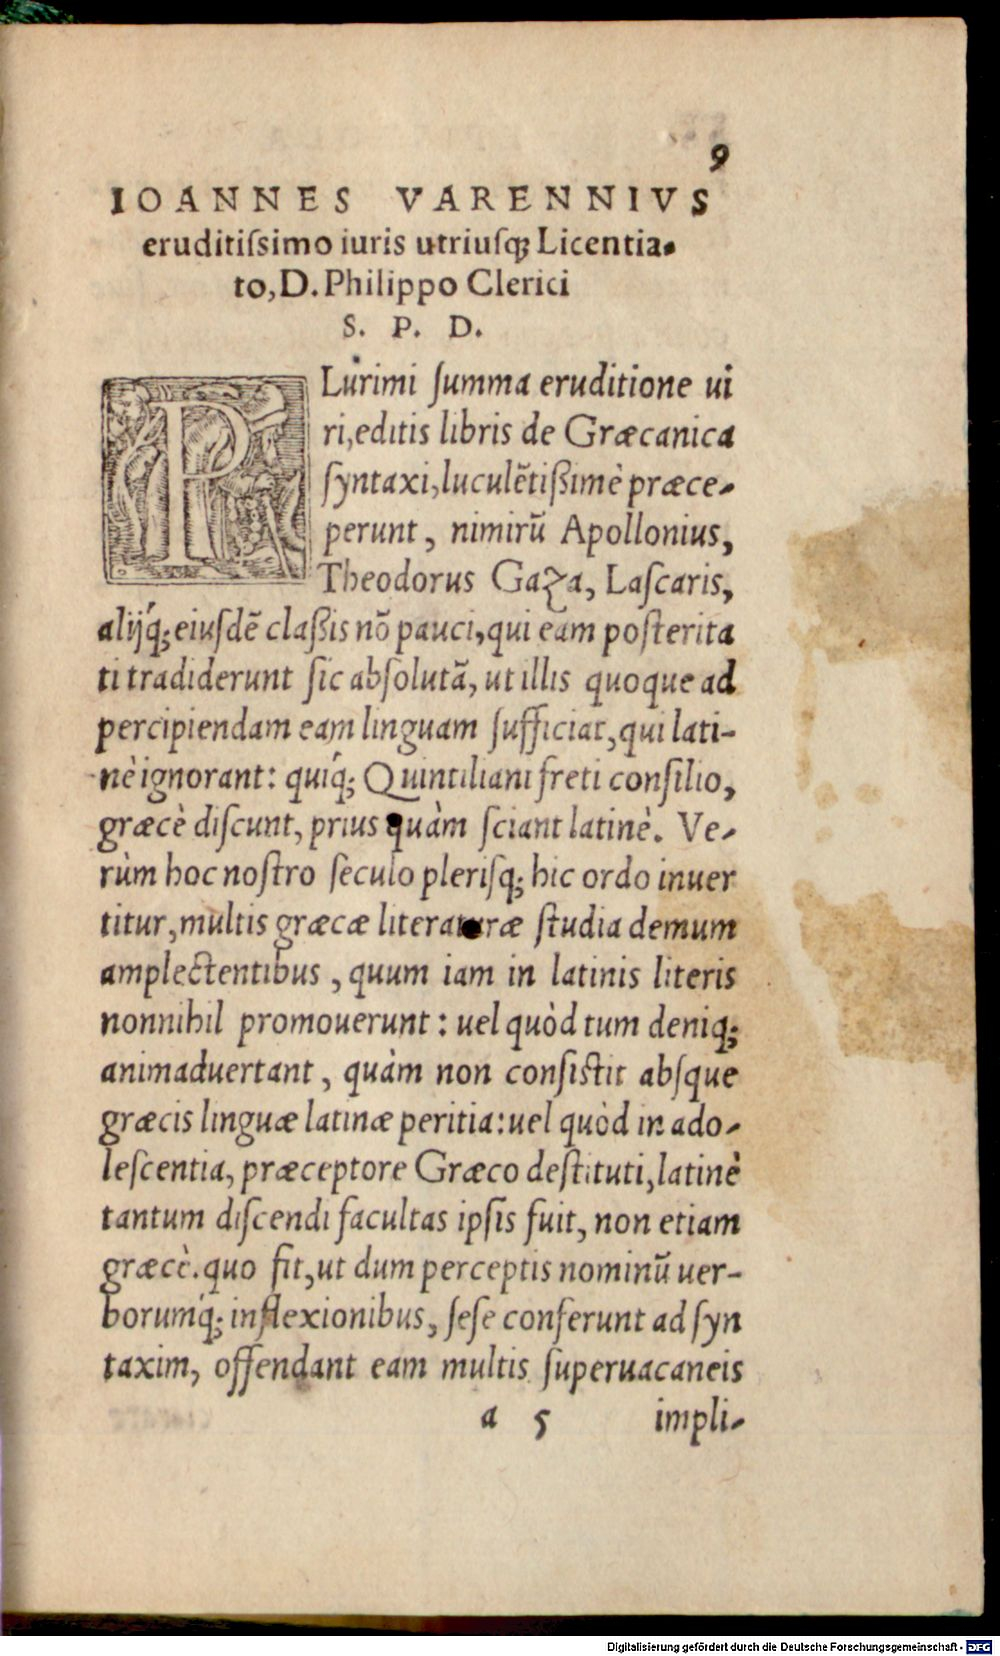 9
IOANNES VARENNIVS
eruditiſsimo iuris utriuſq; Licentia-
to, D. Philippo Clerici
S. P. D.
PLurimi ſumma eruditione ui
ri, editis libris de Græcanica
ſyntaxi, luculẽtiſsimè præce-
perunt, nimirũ Apollonius,
Theodorus Gaza, Laſcaris,
alijq́; eiuſdẽ claſsis nõ pauci, qui eam poſterita
ti tradiderunt ſic abſolutã, ut illis quoque ad
percipiendam eam linguam ſufficiat, qui lati-
nè ignorant: quiq́; Quintiliani freti conſilio,
græcè diſcunt, prius quàm ſciant latinè. Ve-
rùm hoc noſtro ſeculo pleriſq; hic ordo inuer
titur, multis græcæ literaturæ ſtudia demum
amplectentibus, quum iam in latinis literis
nonnihil promouerunt: uel quòd tum deniq;
animaduertant, quàm non conſiſtit abſque
græcis linguæ latinæ peritia: uel quòd in ado-
leſcentia, præceptore Græco deſtituti, latinè
tantum diſcendi facultas ipſis fuit, non etiam
græcè. quo fit, ut dum perceptis nominũ uer-
borumq́; inflexionibus, ſeſe conferunt ad ſyn
taxim, offendant eam multis ſuperuacaneis
a 5 impli-
Digitalisierung gefördert durch die Deutsche Forschungsgemeinschaft - DFG